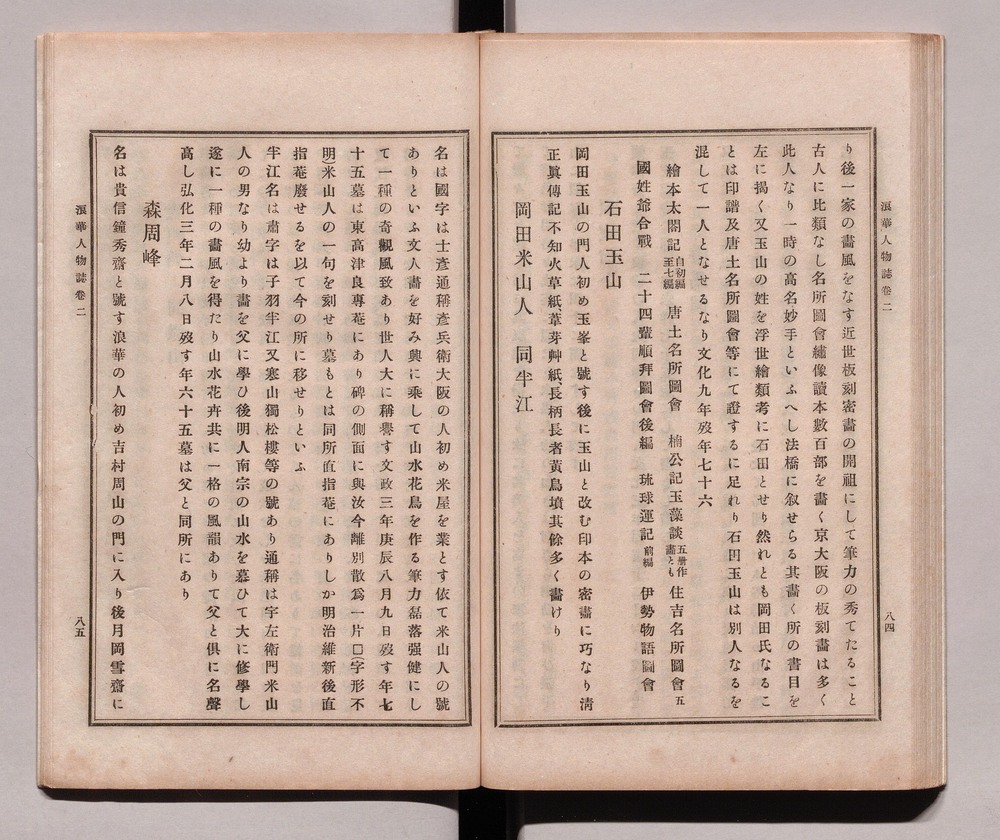 浪華人物誌卷二
八四
り後一家の畫風をなす近世板刻密畫の開祖にして筆力の秀てたること
古人に比類なし名所圖會繡像讀本數百部を畫く京大阪の板刻畫は多く
此人なり一時の高名妙手といふへし法橋に敘せらる其畫く所の書目を
左に揭く又玉山の姓を浮世繪類考に石田とせり然れとも岡田氏なるこ
とは印譜及唐土名所圖會等にて證するに足れり石田玉山は別人なるを
混して一人となせるなり文化九年歿年七十六
繪本太閤記自初編至七編 唐土名所圖會 楠公記玉藻談五册作畫とも 住吉名所圖會五
國姓爺合戰 二十四輩順拜圖會後編 琉球運記前編 伊勢物語圖會
石田玉山
岡田玉山の門人初め玉峯と號す後に玉山と改む印本の密畫に巧なり淸
正眞傳記不知火草紙葦芽艸紙長柄長者黃鳥墳其餘多く畵けり
岡田米山人 同半江
名は國字は士彥通稱彥兵衛大阪の人初め米屋を業とす依て米山人の號
ありといふ文人畵を好み興に乘して山水花鳥を作る筆力磊落强健にし
て一種の奇觀風致あり世人大に稱譽す文政三年庚辰八月九日歿す年七
十五墓は東高津良專菴にあり碑の側面に與汝今離別散爲一片□(字形不
明)米山人の一句を刻せり墓もとは同所直指菴にありしか明治維新後直
指菴廢せるを以て今の所に移せりといふ
半江名は肅字は子羽半江又寒山獨松樓等の號あり通稱は宇左衛門米山
人の男なり幼より畫を父に學ひ後明人南宗の山水を慕ひて大に修學し
遂に一種の畫風を得たり山水花卉共に一格の風韻ありて父と俱に名聲
高し弘化三年二月八日歿す年六十五墓は父と同所にあり
森周峰
名は貴信鐘秀齋と號す浪華の人初め吉村周山の門に入り後月岡雪齋に
浪華人物誌卷二
八五